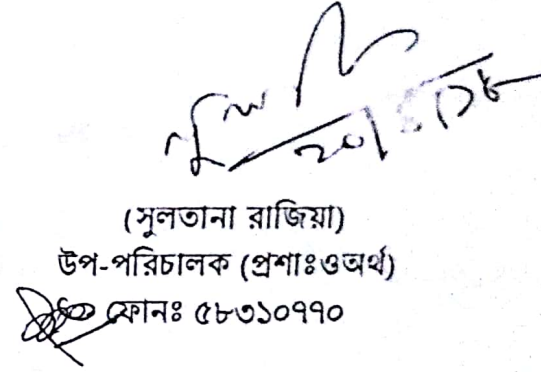 (সুলতানা রাজিয়া)
উপ-পরিচালক (প্রশাঃওঅর্থ)
ফোনঃ ৫৮৩১০৭৭০